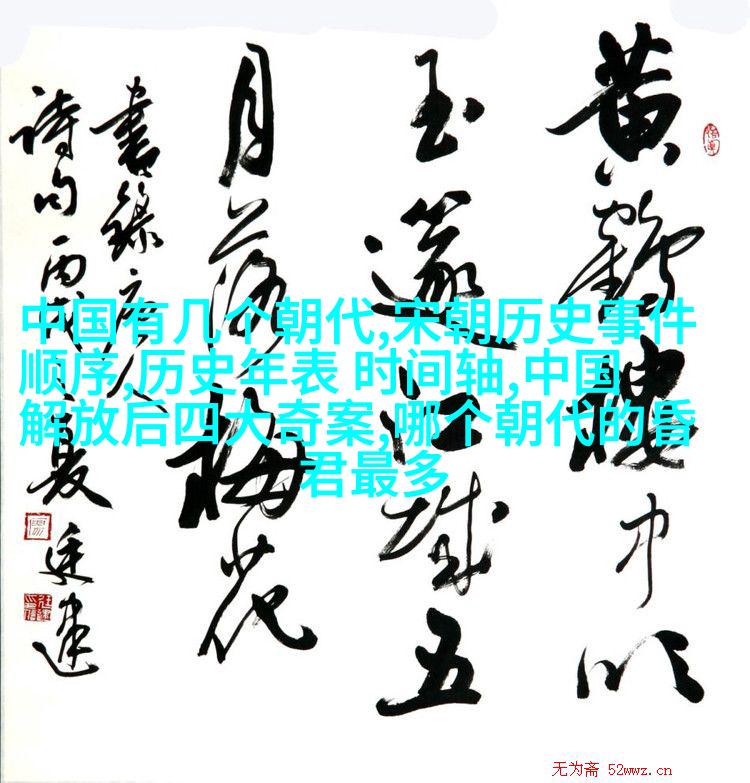 黄鶴樓中吹
玉篴江城五
月落梅花
書錄唐人
詩句丙戌夏廷建
中国有几个朝代,宋朝历史事件
顺序,历史年表 时间轴,中国
解放后四大奇案,哪个朝代的昏
君最多
无为斋 52wwz.cn